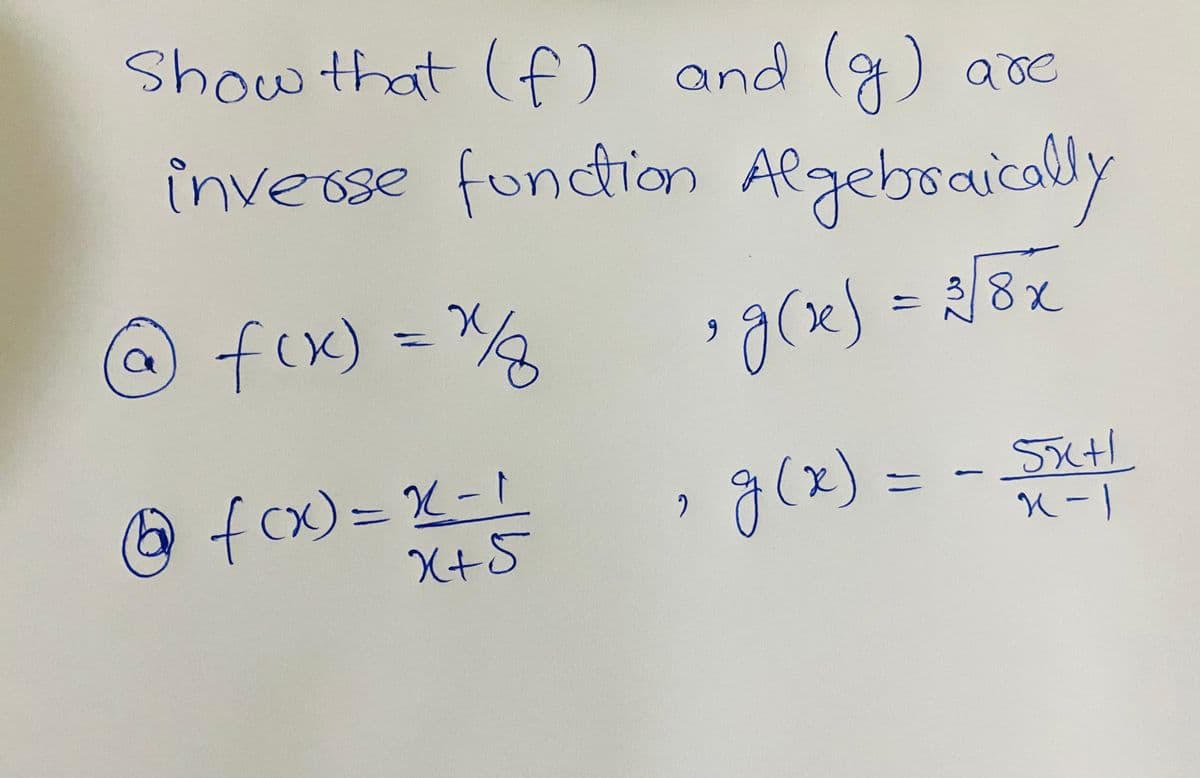 Show that (f) and (g) are
inverse function Algebraically
ⓐ f(x) = x/8 , g(x) = ∛8x
ⓑ f(x) = x-1/x+5 , g(x) = - 5x+1/x-1